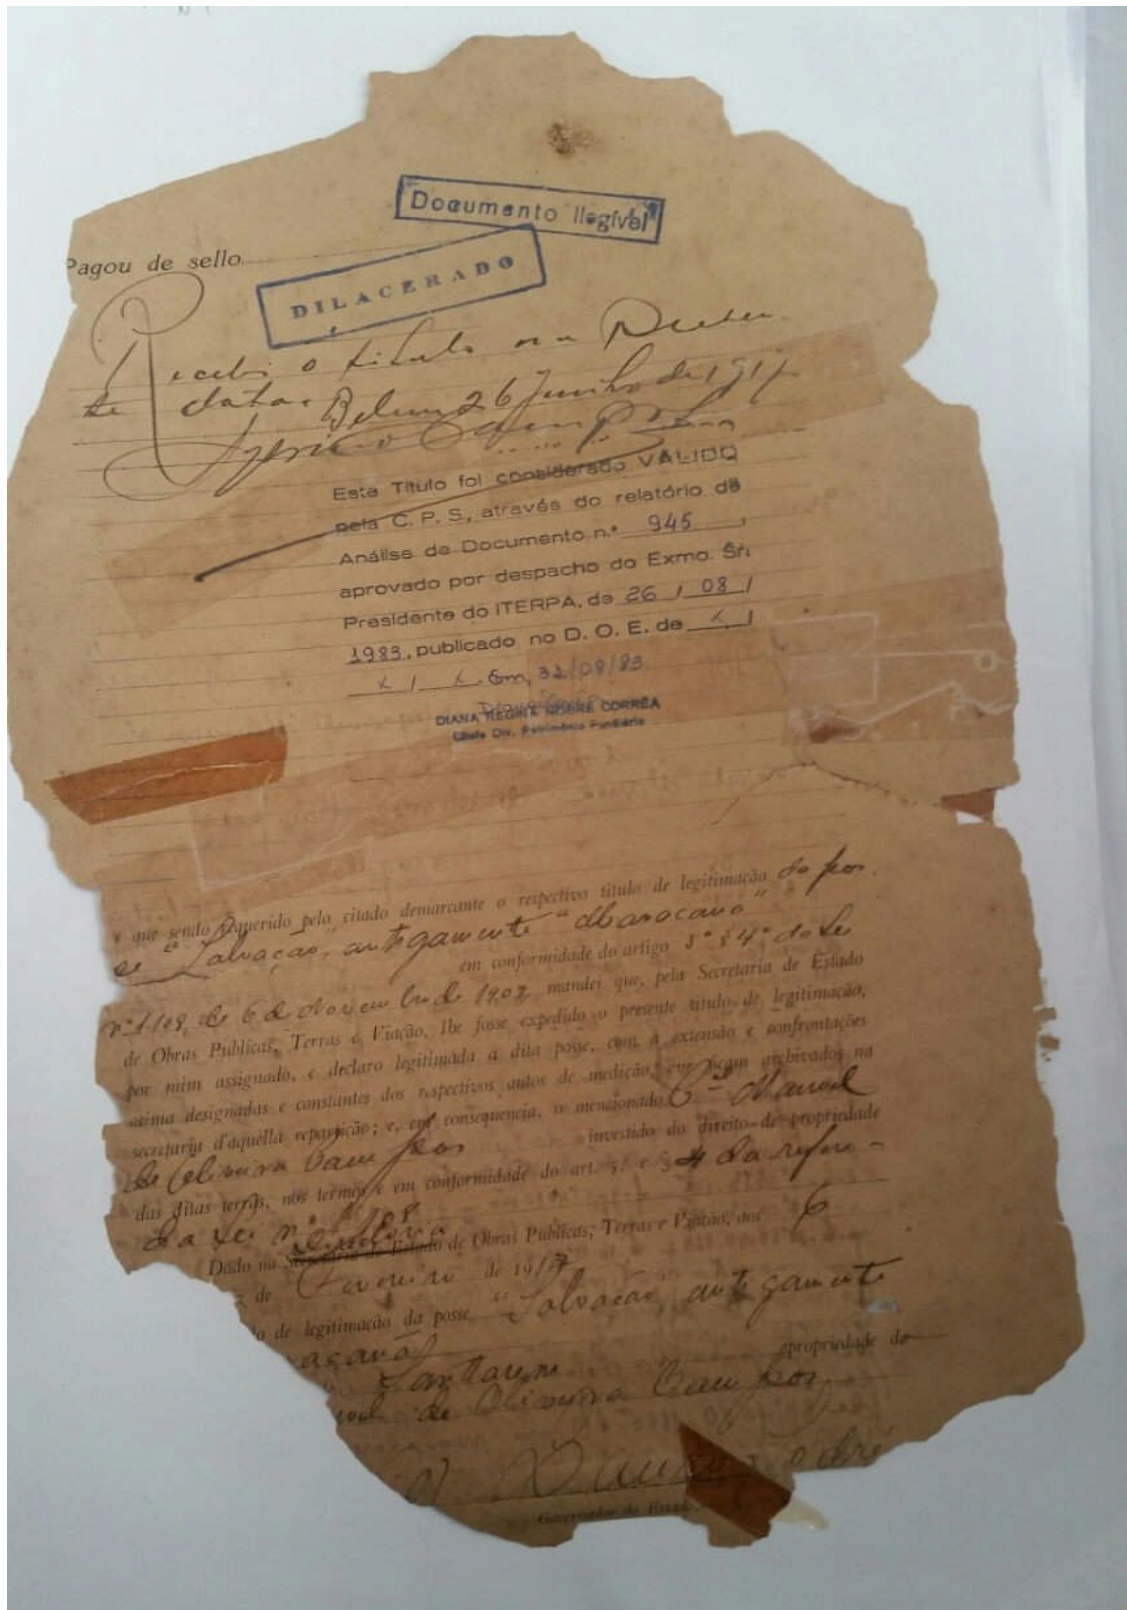 Documento Ilegível
Pagou de sello
DILACERADO
Recebi o titulo
data. Belem 26 Junho de 1917
Este Título foi considerado VÁLIDO
pela C. P. S, através do relatório de
Análise de Documento n.º 945
aprovado por despacho do Exmo. Sr.
Presidente do ITERPA, de 26 / 08 /
1983, publicado no D. O. E. de x /
x / x. Em, 31/08/83.
DIANA REGINA NOBRE CORRÊA
Chefe Div. Patrimônio Fundiário
e que sendo requerido pelo citado demarcante o respectivo titulo de legitimação da pos
se "Salvação, antigamente
em conformidade do artigo 5º § 4º da Lei
nº 1108, de 6 de Novembro de 1902 mandei que, pela Secretaria de Estado
de Obras Publicas, Terras e Viação, lhe fosse expedido o presente titulo de legitimação,
por mim assignado, e declaro legitimada a dita posse, com a extensão e confrontações
acima designadas e constantes dos respectivos autos de medição, que ficam archivados na
secretaria d'aquella repartição; e, em consequencia, o mencionado Manoel
de Oliveira Campos investido do direito de propriedade
das ditas terras, nos termos e em conformidade do art. 5º e § 4 da referi-
da Lei nº 1108
Dado na Secretaria de Estado de Obras Publicas, Terras e Viação, aos 6
de Fevereiro de 1917
de legitimação da posse "Salvação, antigamente
propriedade do
de Oliveira Campos
Governador do Estado